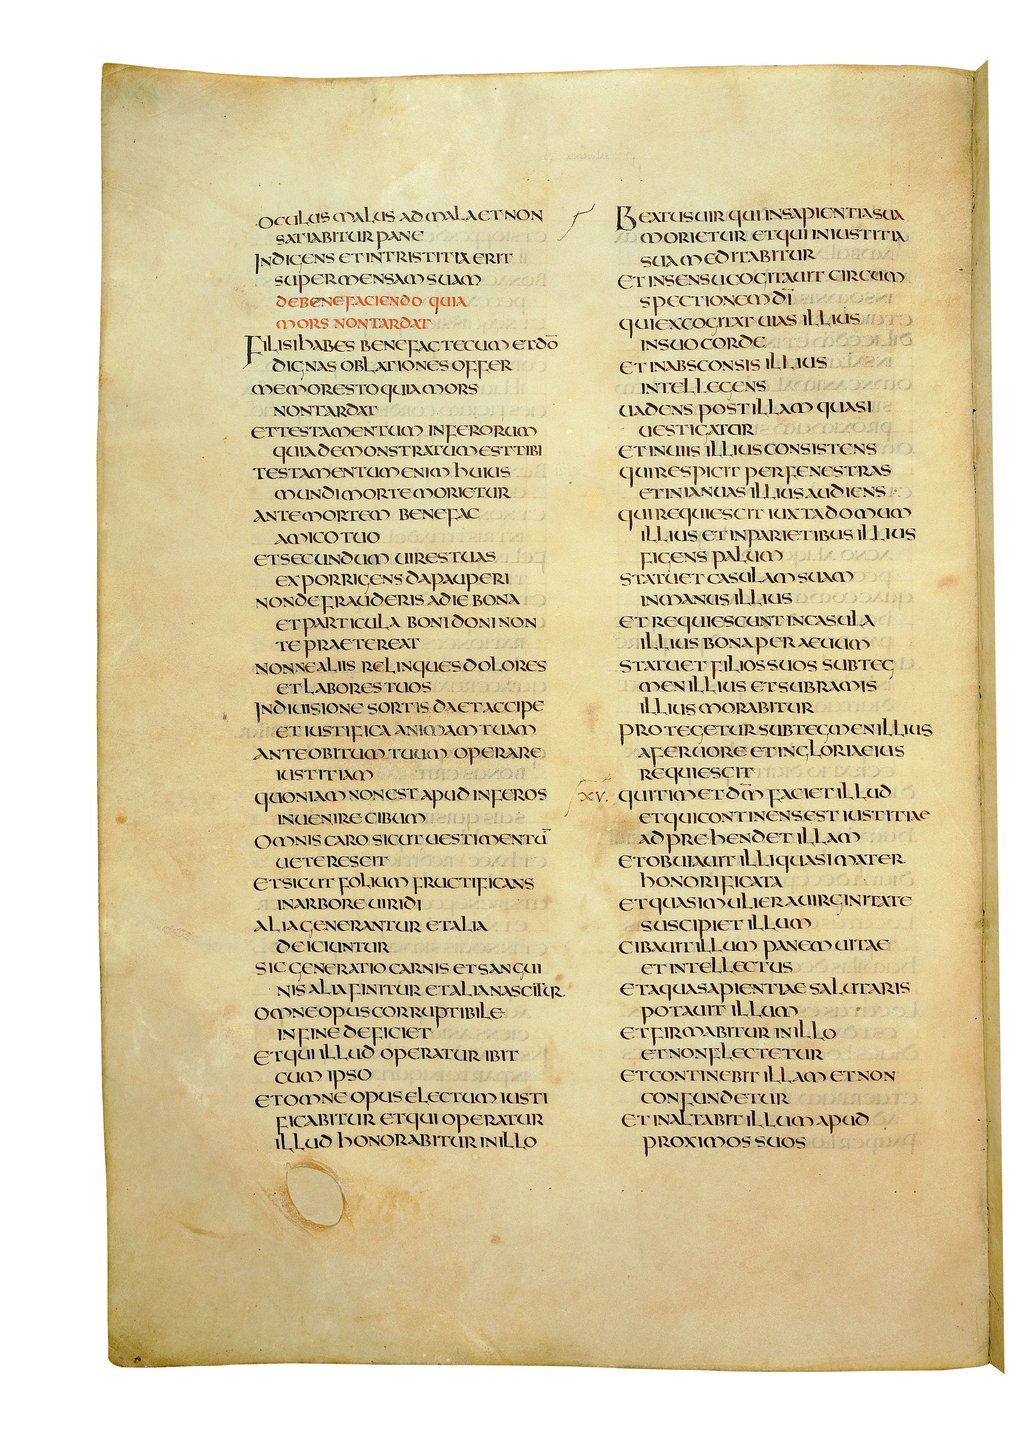 OCULUS MALUS AD MALA ET NON
SATIABITUR PANE
INDIGENS ET IN TRISTITIA ERIT
SUPER MENSAM SUAM
DE BENEFACIENDO QUIA
MORS NON TARDAT
FILI SI HABES BENEFAC TECUM ET DŌ
DIGNAS OBLATIONES OFFER
MEMOR ESTO QUIA MORS
NON TARDAT
ET TESTAMENTUM INFERORUM
QUIA DEMONSTRATUM EST TIBI
TESTAMENTUM ENIM HUIUS
MUNDI MORTE MORIETUR
ANTE MORTEM BENEFAC
AMICO TUO
ET SECUNDUM UIRES TUAS
EXPORRIGENS DA PAUPERI
NON DEFRAUDERIS A DIE BONA
ET PARTICULA BONI DONI NON
TE PRAETEREAT
NONNE ALIIS RELINQUES DOLORES
ET LABORES TUOS
IN DIUISIONE SORTIS DA ET ACCIPE
ET IUSTIFICA ANIMAM TUAM
ANTE OBITUM TUUM OPERARE
IUSTITIAM
QUONIAM NON EST APUD INFEROS
INUENIRE CIBUM
OMNIS CARO SICUT UESTIMENTŪ
UETERESCIT
ET SICUT FOLIUM FRUCTIFICANS
IN ARBORE UIRIDI
ALIA GENERANTUR ET ALIA
DEICIUNTUR
SIC GENERATIO CARNIS ET SANGUI
NIS ALIA FINITUR ET ALIA NASCITUR.
OMNE OPUS CORRUPTIBILE
IN FINE DEFICIET
ET QUI ILLUD OPERATUR IBIT
CUM IPSO
ET OMNE OPUS ELECTUM IUSTI
FICABITUR ET QUI OPERATUR
ILLUD HONORABITUR IN ILLO
BEATUS UIR QUI IN SAPIENTIA SUA
MORIETUR ET QUI IN IUSTITIA
SUA MEDITABITUR
ET IN SENSU COGITAUIT CIRCUM
SPECTIONEM DĪ
QUI EXCOGITAT UIAS ILLIUS
IN SUO CORDE
ET IN ABSCONSIS ILLIUS
INTELLEGENS
UADENS POST ILLAM QUASI
UESTIGATUR
ET IN UIIS ILLIUS CONSISTENS
QUI RESPICIT PER FENESTRAS
ET IN IANUAS ILLIUS AUDIENS
QUI REQUIESCIT IUXTA DOMUM
ILLIUS ET IN PARIETIBUS ILLIUS
FIGENS PALUM
STATUET CASULAM SUAM
IN MANUS ILLIUS
ET REQUIESCUNT IN CASULA
ILLIUS BONA PER AEUUM
STATUET FILIOS SUOS SUB TEG
MEN ILLIUS ET SUB RAMIS
ILLIUS MORABITUR
PROTEGETUR SUB TEGMEN ILLIUS
A FERUORE ET IN GLORIA EIUS
REQUIESCIT
XV. QUI TIMET DM̄ FACIET ILLUD
ET QUI CONTINENS EST IUSTITIAE
ADPREHENDET ILLAM
ET OBUIAUIT ILLI QUASI MATER
HONORIFICATA
ET QUASI MULIER A UIRGINITATE
SUSCIPIET ILLUM
CIBAUIT ILLUM PANEM UITAE
ET INTELLECTUS
ET AQUA SAPIENTIAE SALUTARIS
POTAUIT ILLUM
ET FIRMABITUR IN ILLO
ET NON FLECTETUR
ET CONTINEBIT ILLAM ET NON
CONFUNDETUR
ET INALTABIT ILLUM APUD
PROXIMOS SUOS